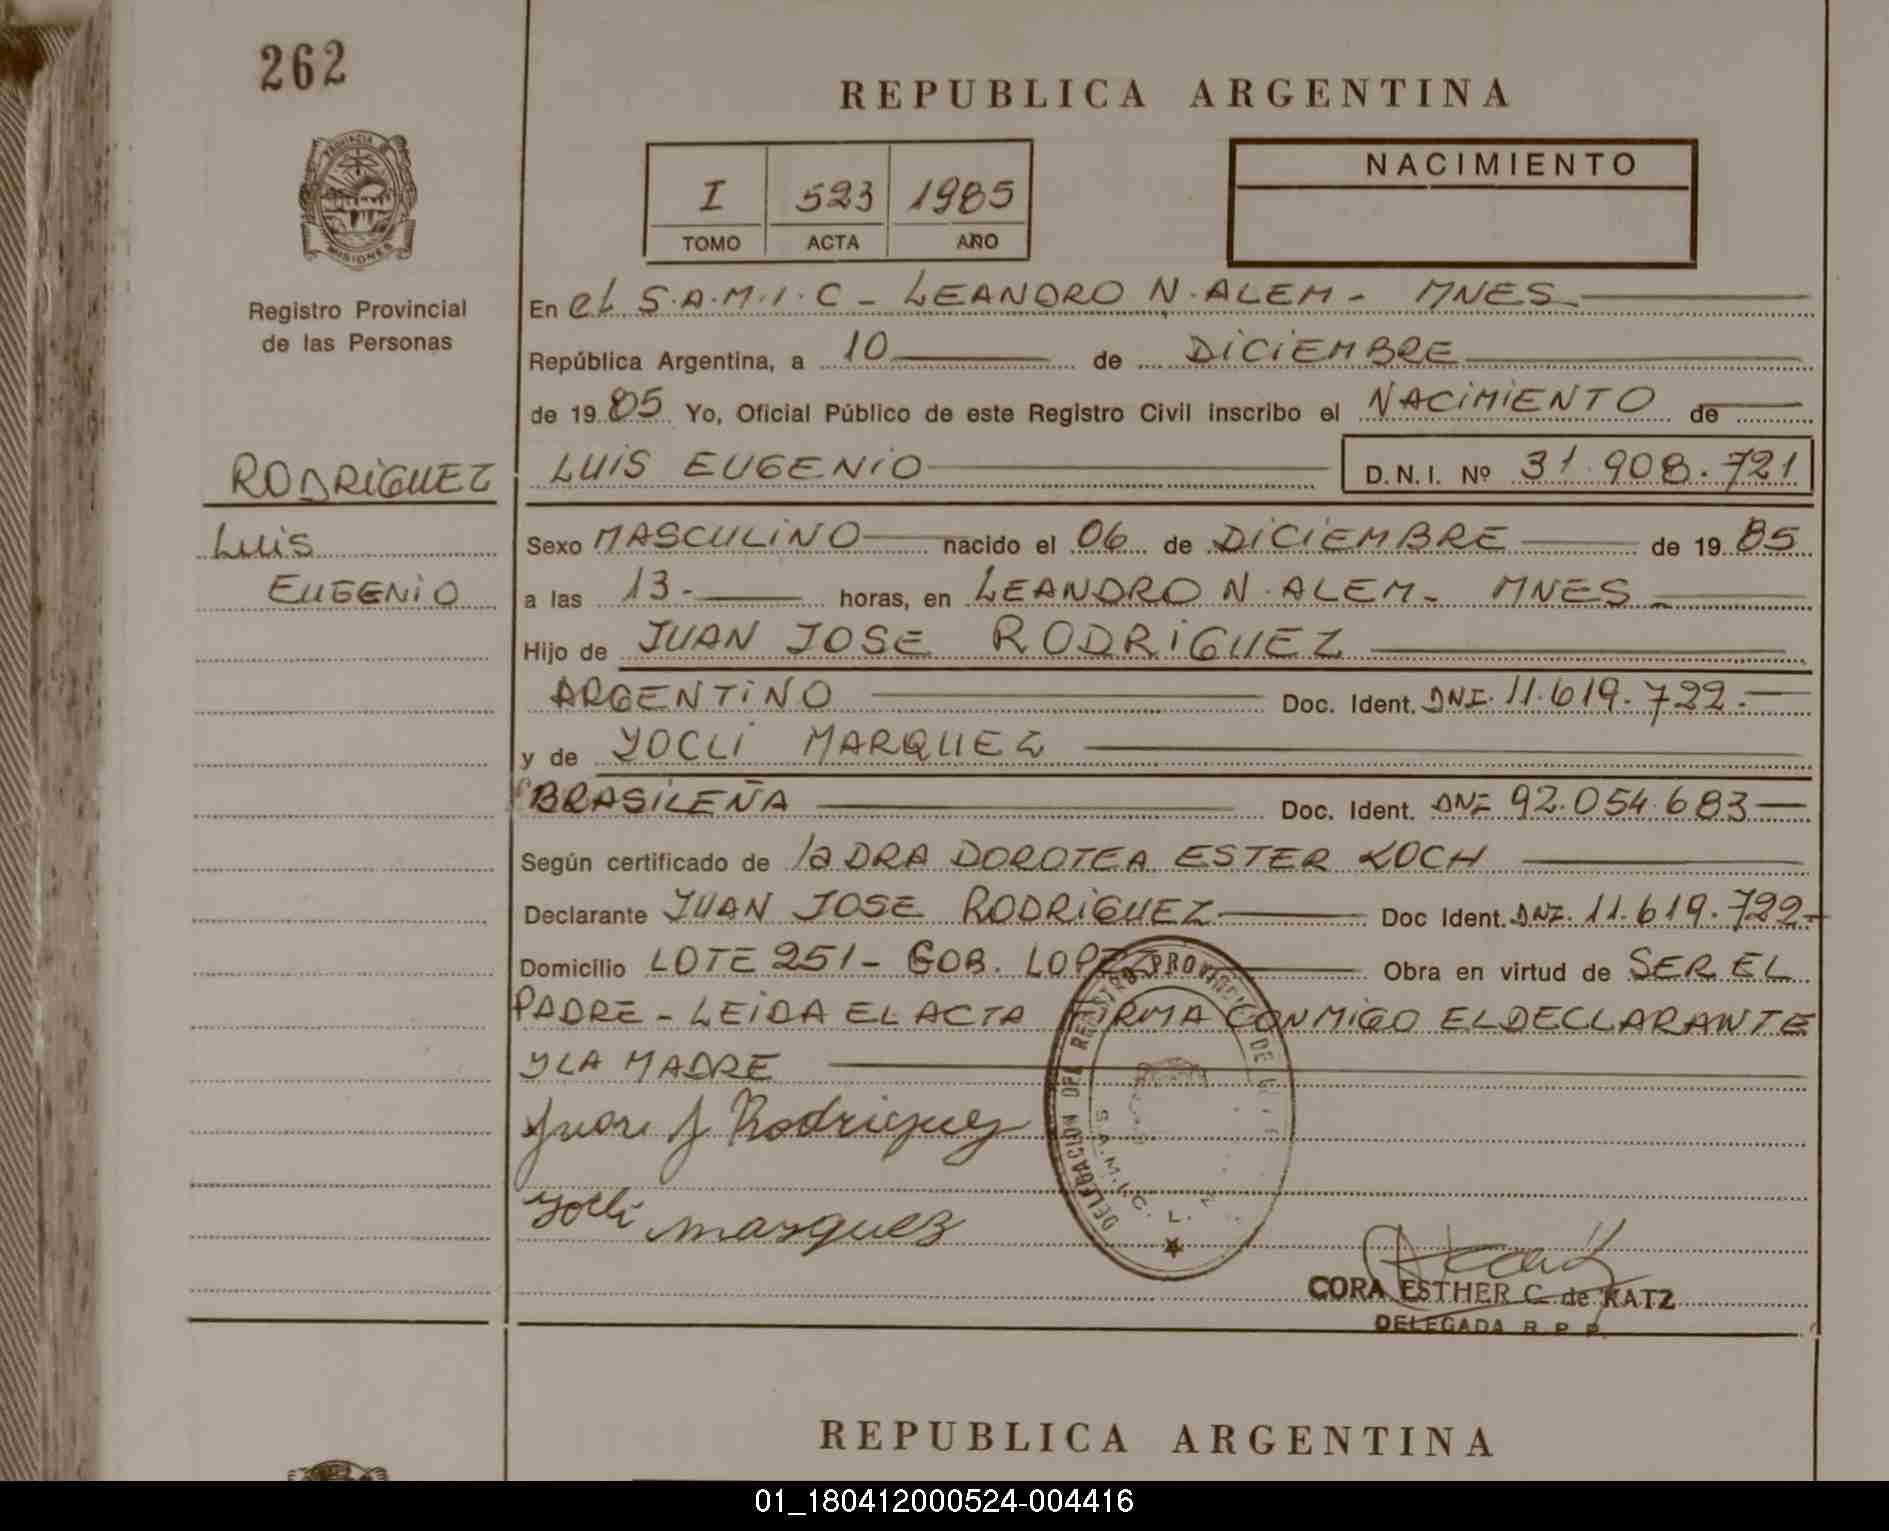 262
REPUBLICA ARGENTINA
PROVINCIA DE MISIONES
I 523 1985
TOMO ACTA AÑO
NACIMIENTO
Registro Provincial
de las Personas
En el S.A.M.I.C - LEANDRO N. ALEM - MNES
República Argentina, a 10 de DICIEMBRE
de 1985 Yo, Oficial Público de este Registro Civil inscribo el NACIMIENTO de
RODRIGUEZ
LUIS EUGENIO D.N.I. Nº 31.908.721
Luis
EUGENIO
Sexo MASCULINO nacido el 06 de DICIEMBRE de 1985
a las 13- horas, en LEANDRO N. ALEM - MNES -
Hijo de JUAN JOSE RODRIGUEZ
ARGENTINO Doc. Ident. DNI. 11.619.722.-
y de YOCLI MARQUEZ
BRASILEÑA Doc. Ident. DNI 92.054.683
Según certificado de la DRA DOROTEA ESTER KOCH
Declarante JUAN JOSE RODRIGUEZ Doc Ident. DNI. 11.619.722-
Domicilio LOTE 251 - GOB. LOPEZ Obra en virtud de SER EL
PADRE - LEIDA EL ACTA FIRMA CONMIGO EL DECLARANTE
Y LA MADRE
Juan J Rodriguez
Yocli Marquez
DELEGACIÓN DEL REGISTRO PROVINCIAL DE
S.A.M.I.C. L.
CORA ESTHER C. de KATZ
DELEGADA R. P. P.
REPUBLICA ARGENTINA
01_180412000524-004416